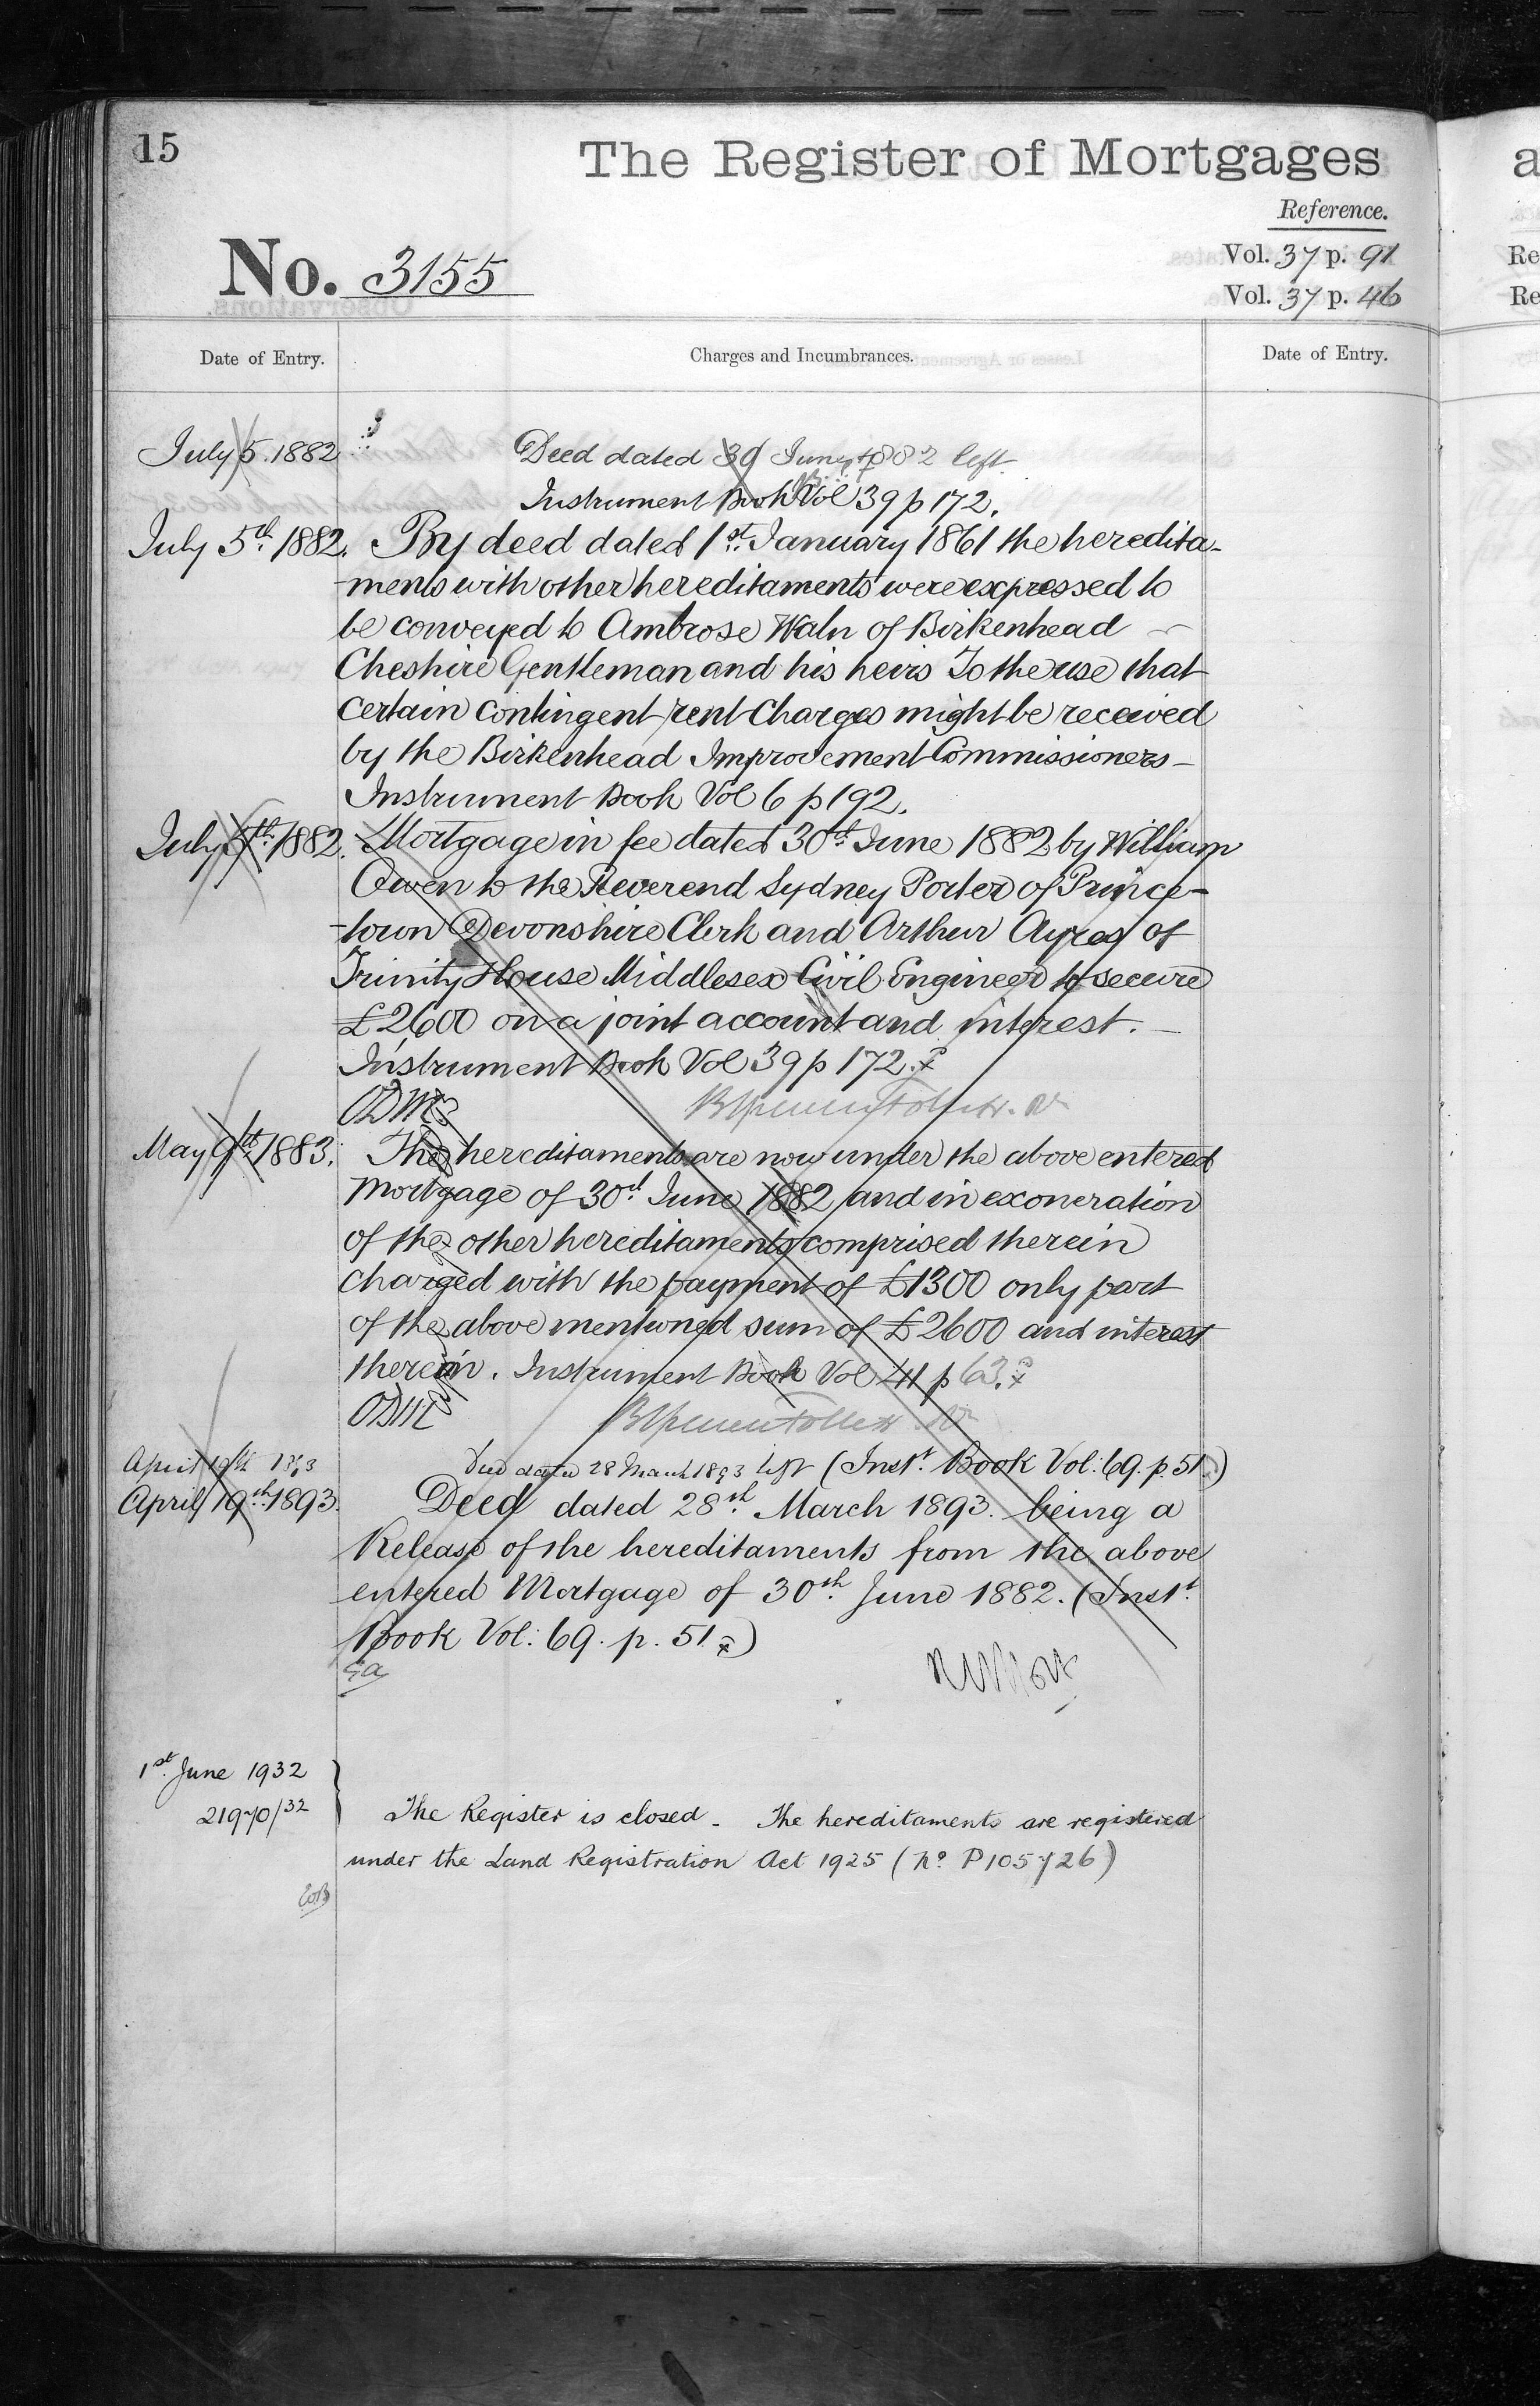 15
The Register of Mortgages
Reference.
No. 3155
Vol. 37 p. 91
Vol. 37 p. 46
Date of Entry.
Charges and Incumbrances.
Date of Entry.
July 5. 1882
Deed dated 30 June 1882 left
Instrument Book Vol 39 p 172.
July 5th. 1882.
By deed dated 1st. January 1861 the heredita-
-ments with other hereditaments were expressed to
be conveyed to Ambrose Waln of Birkenhead
Cheshire Gentleman and his heirs To the use that
certain contingent rent charges might be received
by the Birkenhead Improvement Commissioners -
Instrument Book Vol 6 p 192.
July 1882.
Mortgage in fee dated 30th June 1882 by William
Owen to the Reverend Sydney Porter of Prince-
-town Devonshire Clerk and Arthur Ayres of
Trinity House Middlesex Civil Engineer to secure
£2600 on a joint account and interest. -
Instrument Book Vol 39 p 172.
May 9th. 1883.
The hereditaments are now under the above entered
Mortgage of 30th June 1882 and in exoneration
of the other hereditaments comprised therein
charged with the payment of £1300 only part
of the above mentioned sum of £2600 and interest
Instrument Book Vol 41 p 63.
April 19th 1893
Deed dated 28 March 1893 left (Inst. Book Vol: 69. p. 51.)
April 19th. 1893.
Deed dated 28th March 1893. being a
Release of the hereditaments from the above
entered Mortgage of 30th. June 1882. (Inst.
Book Vol: 69. p. 51)
1st. June 1932
21970/32
The Register is closed - The hereditaments are registered
under the Land Registration Act 1925 (No P105726)
a
Re
Re